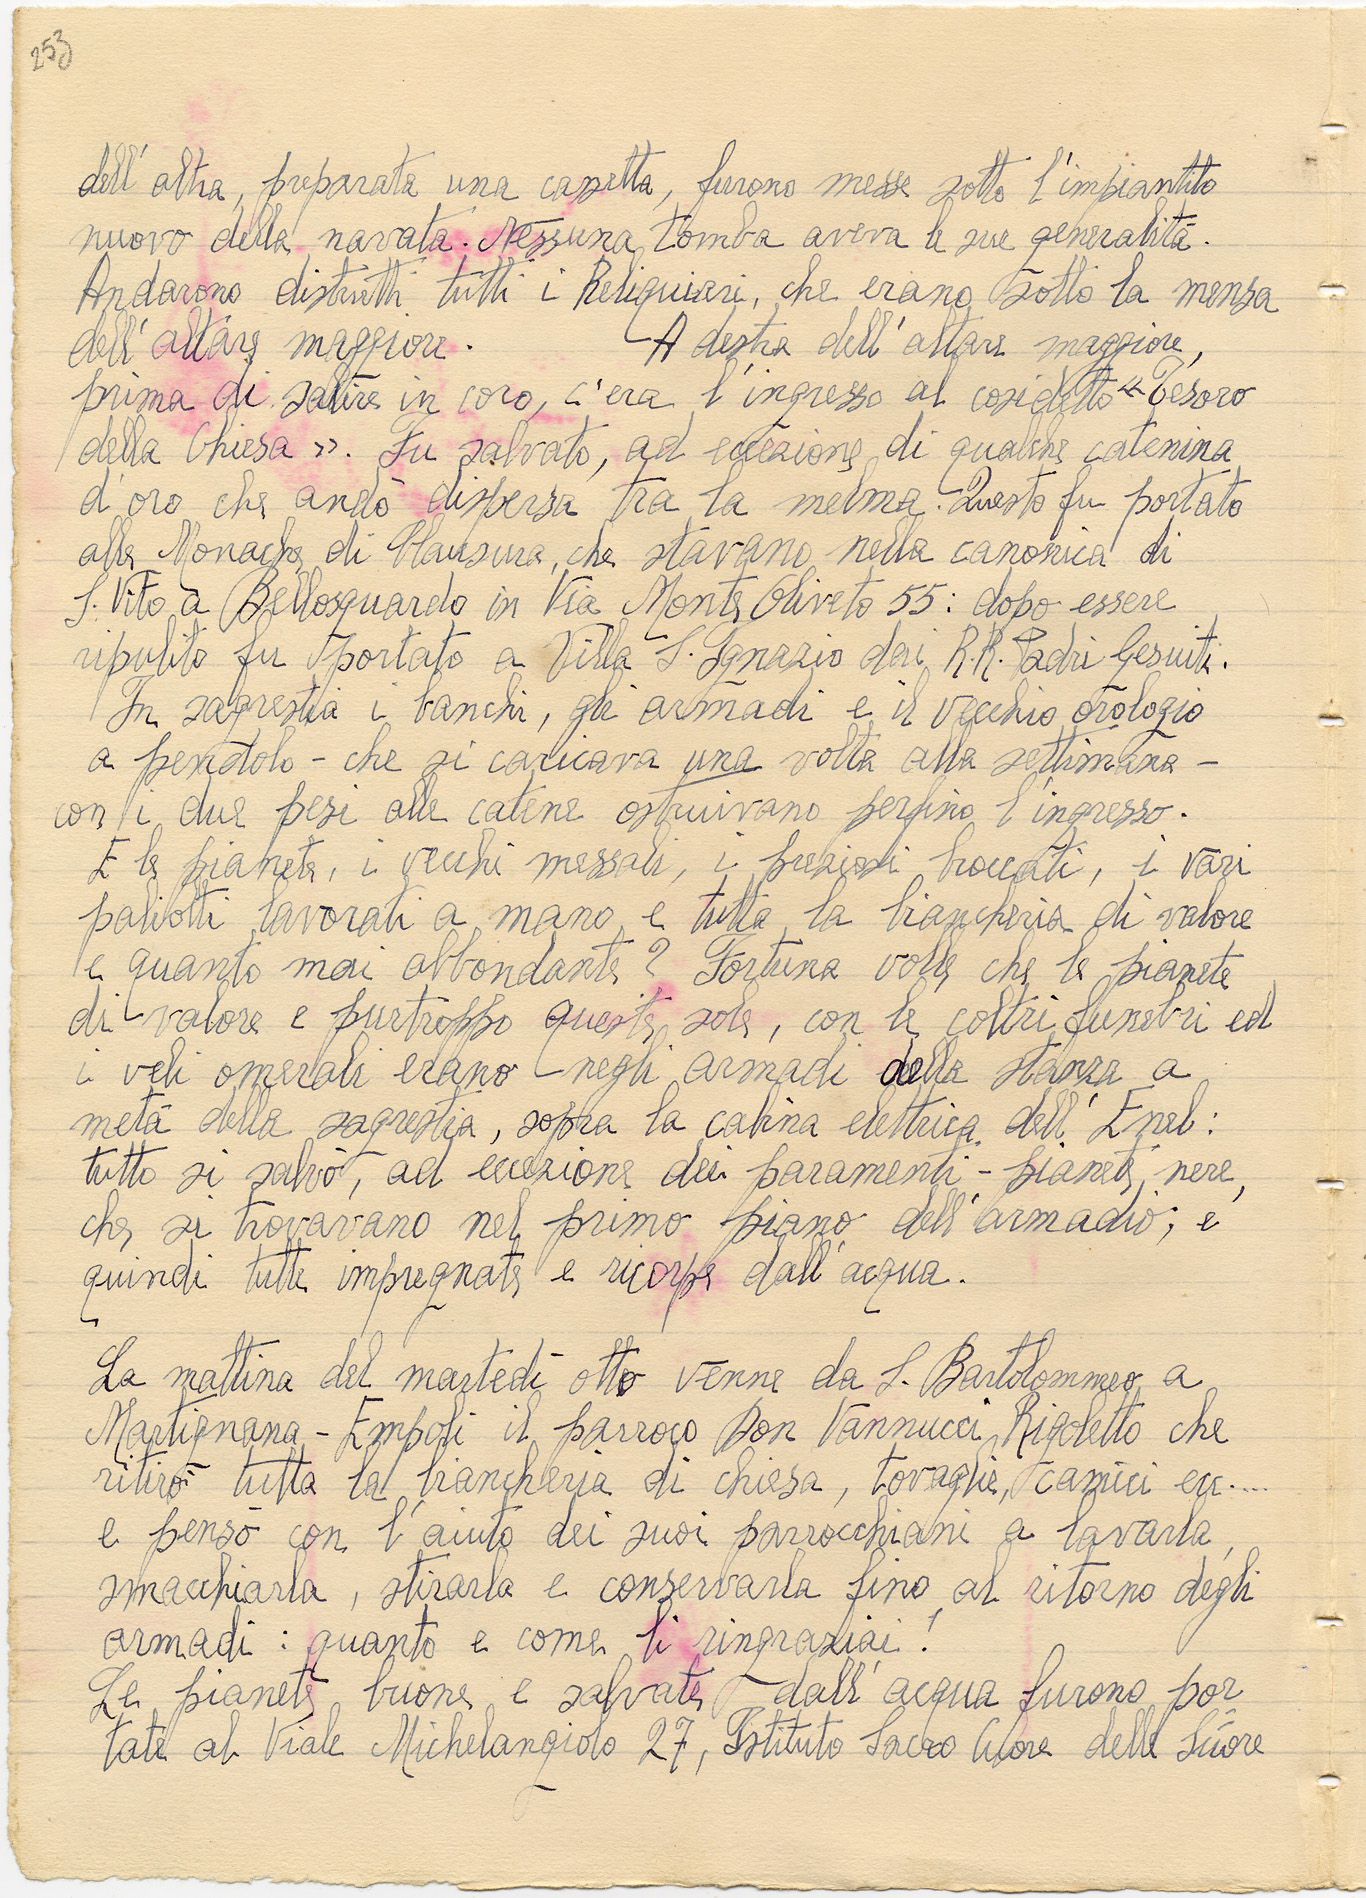 253
dell'altra, preparata una cassetta, furono messe sotto l'impiantito
nuovo della navata. Nessuna tomba aveva le sue generalità.
Andarono distrutti tutti i Reliquiari, che erano sotto la mensa
dell'altare maggiore. A destra dell'altare maggiore,
prima di salire in coro, c'era l'ingresso al cosidetto "Tesoro
della Chiesa ». Fu salvato, ad eccezione di qualche catenina
d'oro che andò dispersa tra la melma. Questo fu portato
alle Monache di Clausura, che stavano nella canonica di
S. Vito a Bellosguardo in Via Monte Oliveto 55: dopo essere
ripulito fu portato a Villa S. Ignazio dai R.R. Padri Gesuiti.
In sagrestia i banchi, gli armadi e il vecchio orologio
a pendolo - che si caricava una volta alla settimana -
con i due pesi alle catene ostruivano perfino l'ingresso.
E le pianete, i vecchi messali, i preziosi broccati, i vari
paliotti lavorati a mano e tutta la biancheria di valore
e quanto mai abbondante? Fortuna volle che le pianete
di valore e purtroppo queste sole, con le coltri funebri ed
i veli omerali erano negli armadi della stanza a
metà della sagrestia, sopra la cabina elettrica dell'Enel:
tutto si salvò, ad eccezione dei paramenti - pianete, nere,
che si trovavano nel primo piano dell'armadio; e
quindi tutte impregnate e ricorpe dall'acqua.
La mattina del martedì otto venne da S. Bartolommeo a
Martignana - Empoli il parroco Don Vannucci Rigoletto che
ritirò tutta la biancheria di chiesa, tovaglie, camici ecc....
e pensò con l'aiuto dei suoi parrocchiani a lavarla,
smacchiarla, stirarla e conservarla fino al ritorno degli
armadi: quanto e come li ringraziai!
Le pianete buone e salvate dall'acqua furono por
tate al Viale Michelangiolo 27, Istituto Sacro Cuore delle Suore